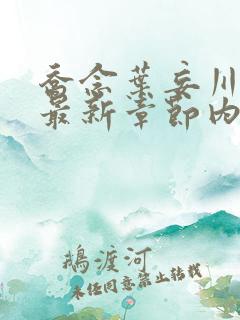 乔念叶妄川
最新章节内
鹅渡河
未经同意禁止转载